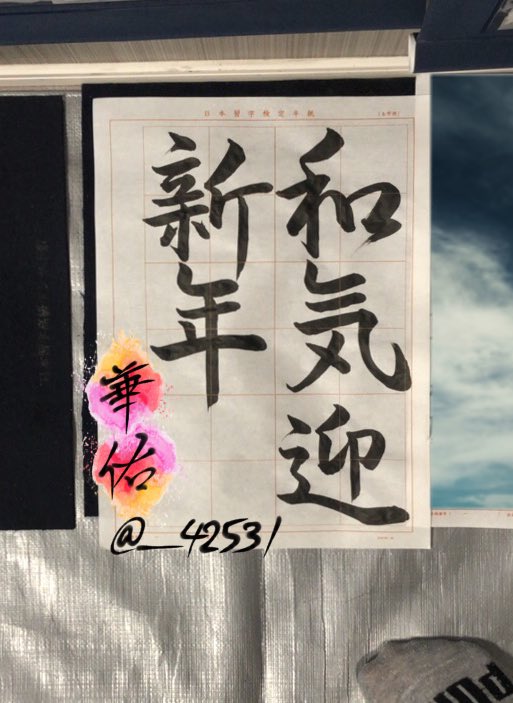 日本習字検定半紙
和気迎
新年
華佑
@_42531